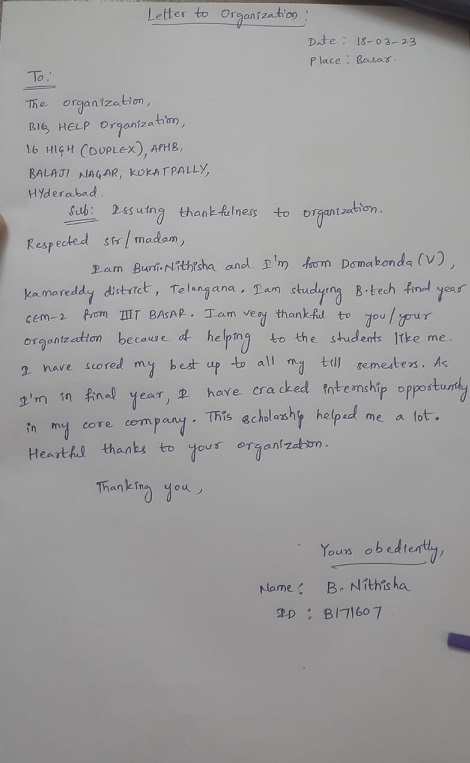 Letter to Organization :
Date : 18-03-23
Place : Basar.
To :
The organization,
BIG HELP Organization,
16 HIGH (DUPLEX), APHB,
BALAJI NAGAR, KUKATPALLY,
Hyderabad.
Sub: Issuing thankfulness to organization.
Respected sir/madam,
I am Burri.Nithisha and I'm from Domakonda (V),
kamareddy district, Telangana. I am studying B.tech final year
sem-2 from IIIT BASAR. I am very thankful to you/your
organization because of helping to the students like me.
I have scored my best up to all my till semesters. As
I'm in final year, I have cracked internship opportunity
in my core company. This scholarship helped me a lot.
Heartful thanks to your organization.
Thanking you,
Yours obediently,
Name : B. Nithisha
ID : B171607